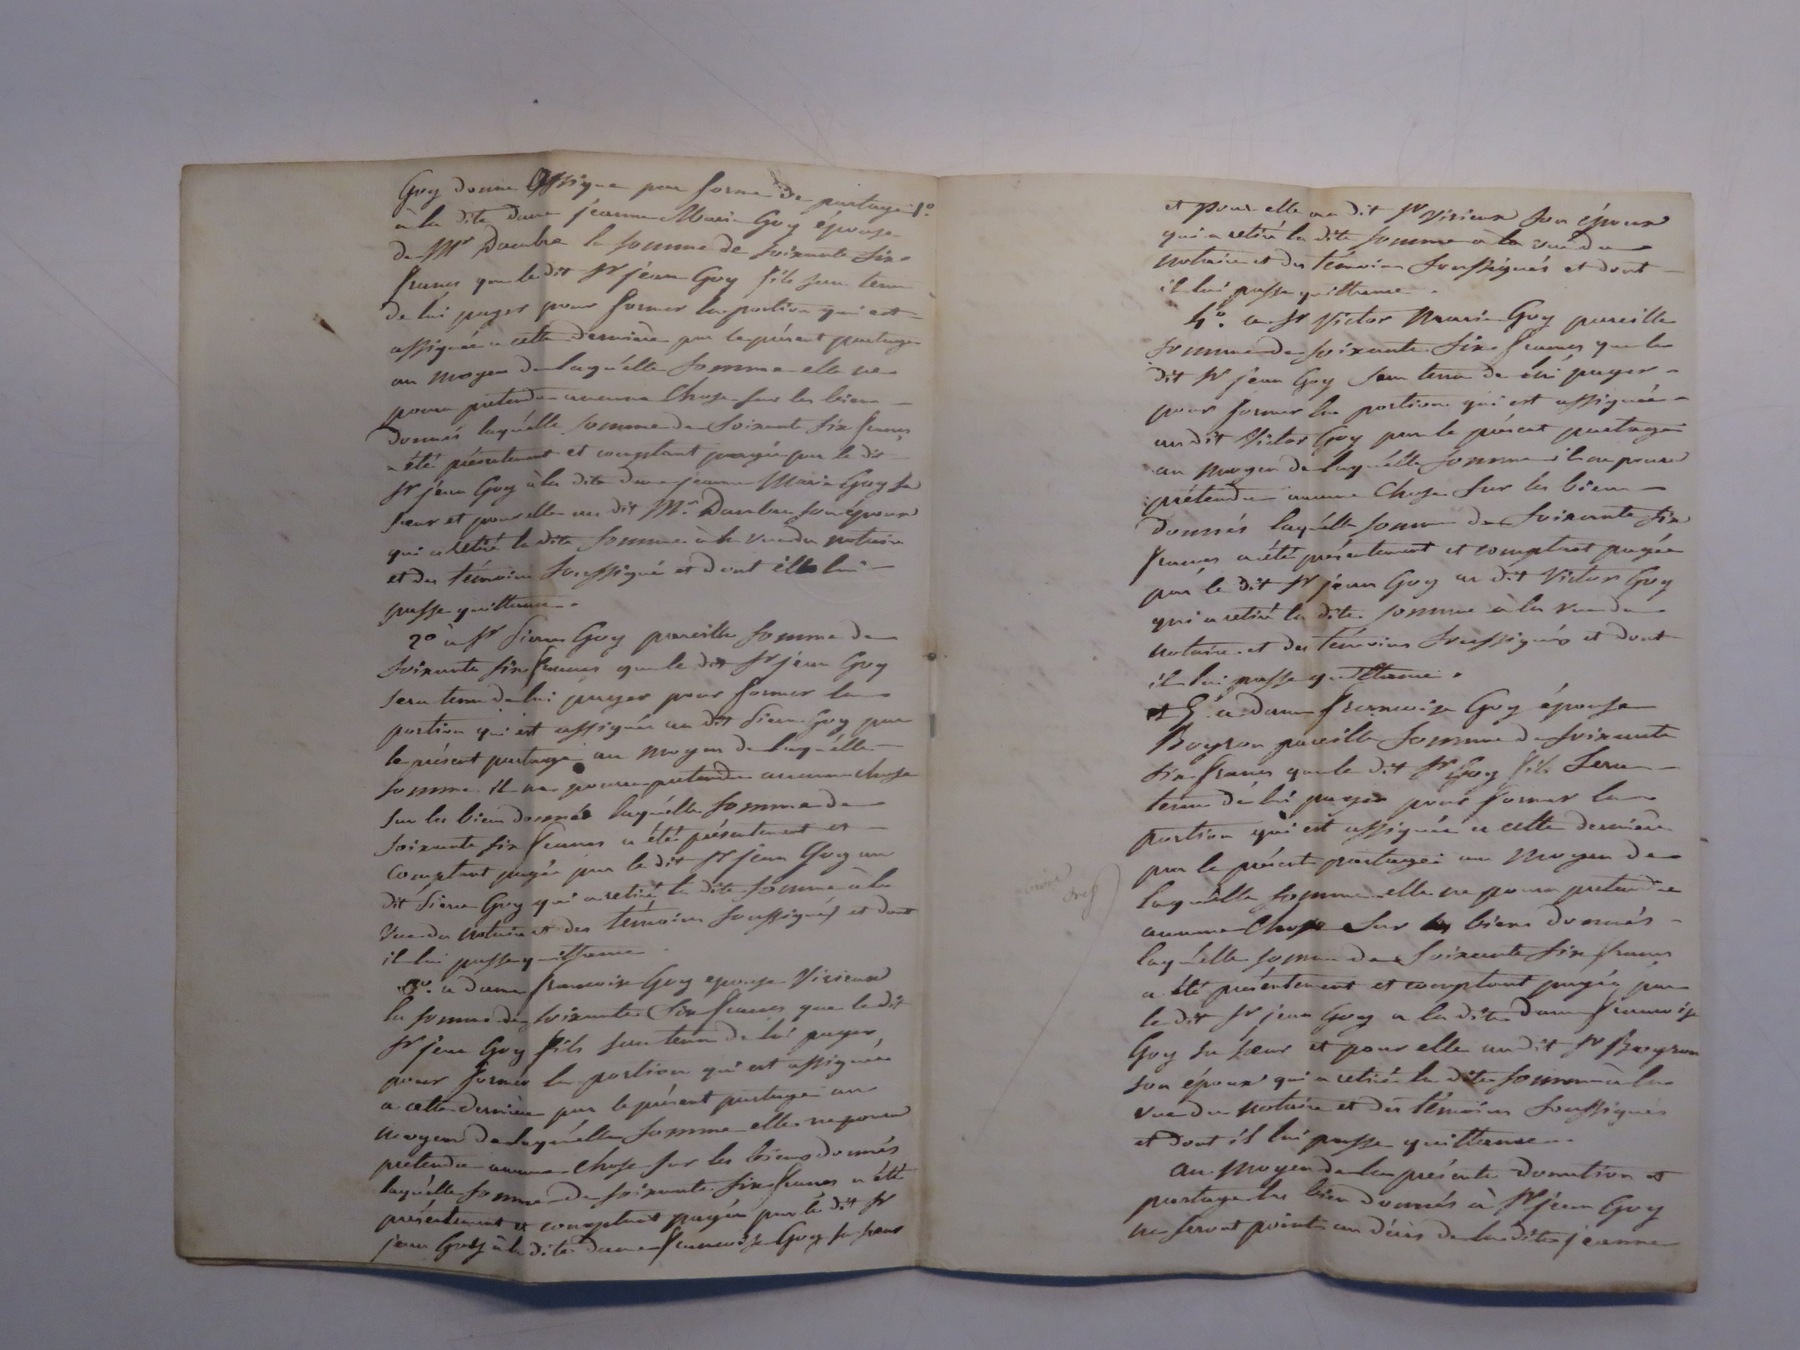 Goy donne assigne par forme de partage 1º.
à la dite dame jeanne Marie Goy épouse
de Mr Daubre la somme de soixante six
francs que le dit Sr jean Goy fils sera tenu
de lui payer pour former la portion qui est
assignée a cette derniere par le présent partage
au moyen de laquélle somme elle ne
poura pretendre aucune chose sur les biens
donnés laquélle somme de soixante six francs
a été présentement et comptant payée par le dit
Sr jean Goy à la dite dame jeanne Marie Goy sa
sœur et pour elle au dit Mr. Daubre son époux
qui a retiré la dite somme à la vue du notaire
et des témoins soussigné et dont il lui
passe quittance.
2º à Sr Pierre Goy pareille somme de
soixante six francs que le dit Sr jean Goy
sera tenu de lui payer pour former la
portion qui est assignée au dit Pierre Goy par
le présent partage au moyen de laquélle
somme il ne poura pretendre aucune chose
sur les biens donnés laquélle somme de
soixante six francs a été présentement et
comptant payée par le dit Sr jean Goy au
dit Pierre Goy qui a retiré la dite somme à la
vue du notaire et des témoins soussignés et dont
il lui passe quittance
3º. a dame francoise Goy epouse Virieux
la somme de soixante six francs que le dit
Sr jean Goy fils sera tenu de lui payer
pour former la portion qui est assignée
a cette derniere par le présent partage au
moyen de laquélle somme elle ne poura
pretendre aucune chose sur les biens donnés
laquélle somme de soixante six francs a été
présentement et comptant payée par le dit Sr
jean Goy à la dite dame francoise Goy sa sœur
et pour elle au dit Sr Virieux son époux
qui a retiré la dite somme a la vue du
notaire et des témoins soussignés et dont
il lui passe quittance.
4º. a Sr Victor Marie Goy pareille
somme de soixante six francs que le
dit Sr jean Goy sera tenu de lui payer
pour former la portion qui est assignée
au dit Victor Goy par le présent partage
au moyen de laquélle somme il ne poura
prétendre aucune chose sur les biens
donnés laquélle somme de soixante six
francs a été présentement et comptant payée
par le dit Sr jean Goy au dit Victor Goy
qui a retiré la dite somme à la vue du
notaire et des témoins soussignés et dont
il lui passe quittance.
et 5. a dame francoise Goy épouse
Boyron pareille somme de soixante
six francs que le dit Sr Goy fils sera
tenu dé lui payer pour former la
portion qui est assignée a cette derniere
par le présent partage au moyen de
laquélle somme elle ne poura pretendre
aucune chose sur les biens donnés
laquélle somme de soixante six francs
a été présentement et comptant payée par
le dit Sr jean Goy a la dite dame francoise
Goy sa sœur et pour elle au dit Sr Boyron
son époux qui a retiré la dite somme à la
vue du notaire et des témoins soussignés
et dont il lui passe quittance.
au moyen de la présente donation et
partage les bien donnés à Sr jean Goy
ne seront point au décès de la dite jeanne